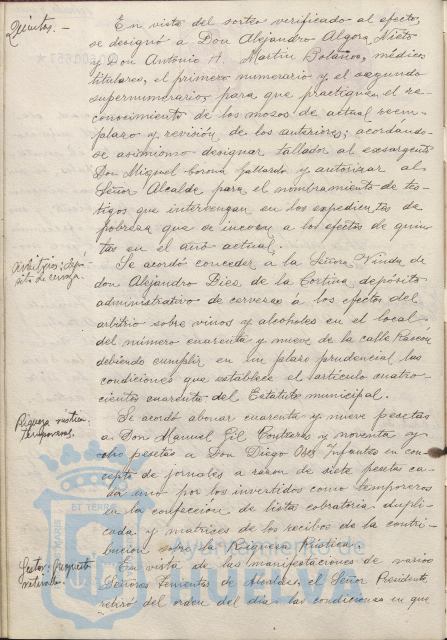 Quintas. —
En vista del sorteo verificado al efecto,
se designó a Don Alejandro Algora Nieto
y Don Antonio A. Martín Bolaños, médicos
titulares, el primero numerario y el segundo
supernumerario, para que practiquen el re-
conocimiento de los mozos de actual reem-
plazo y revisión de los anteriores; acordándo-
se asimismo designar tallador al exsargento
Don Miguel Corona Gallardo y autorizar al
Señor Alcalde para el nombramiento de tes-
tigos que intervengan en los expedientes de
pobreza que se incoen a los efectos de quin-
tas en el año actual.
Arbitrios: Depó-
sito de cerveza.
Se acordó conceder a la Señora Viuda de
don Alejandro Dies de la Cortina, depósito
administrativo de cervezas a los efectos del
arbitrio sobre vinos y alcoholes en el local
del número cuarenta y nueve de la calle Rascón
debiendo cumplir en un plazo prudencial las
condiciones que establece el artículo cuatro-
cientos cuarenta del Estatuto municipal.
Riqueza rústica:
temporeros.
Se acordó abonar cuarenta y nueve pesetas
a Don Manuel Gil Contreras y noventa y
ocho pesetas a Don Diego Infantes en con-
cepto de jornales a razon de siete pesetas ca-
da uno por los invertidos como temporeros
en la confección de lista cobratoria, dupli-
cada y matrices de los recibos de la contri-
bución sobre la Riqueza rústica.
retirado.
En vista de las manifestaciones de varios
Señores Tenientes de Alcalde, el Señor Presidente,
retiró del orden del día las condiciones en que
ET TERRA
Ayuntamiento de
HUELVA